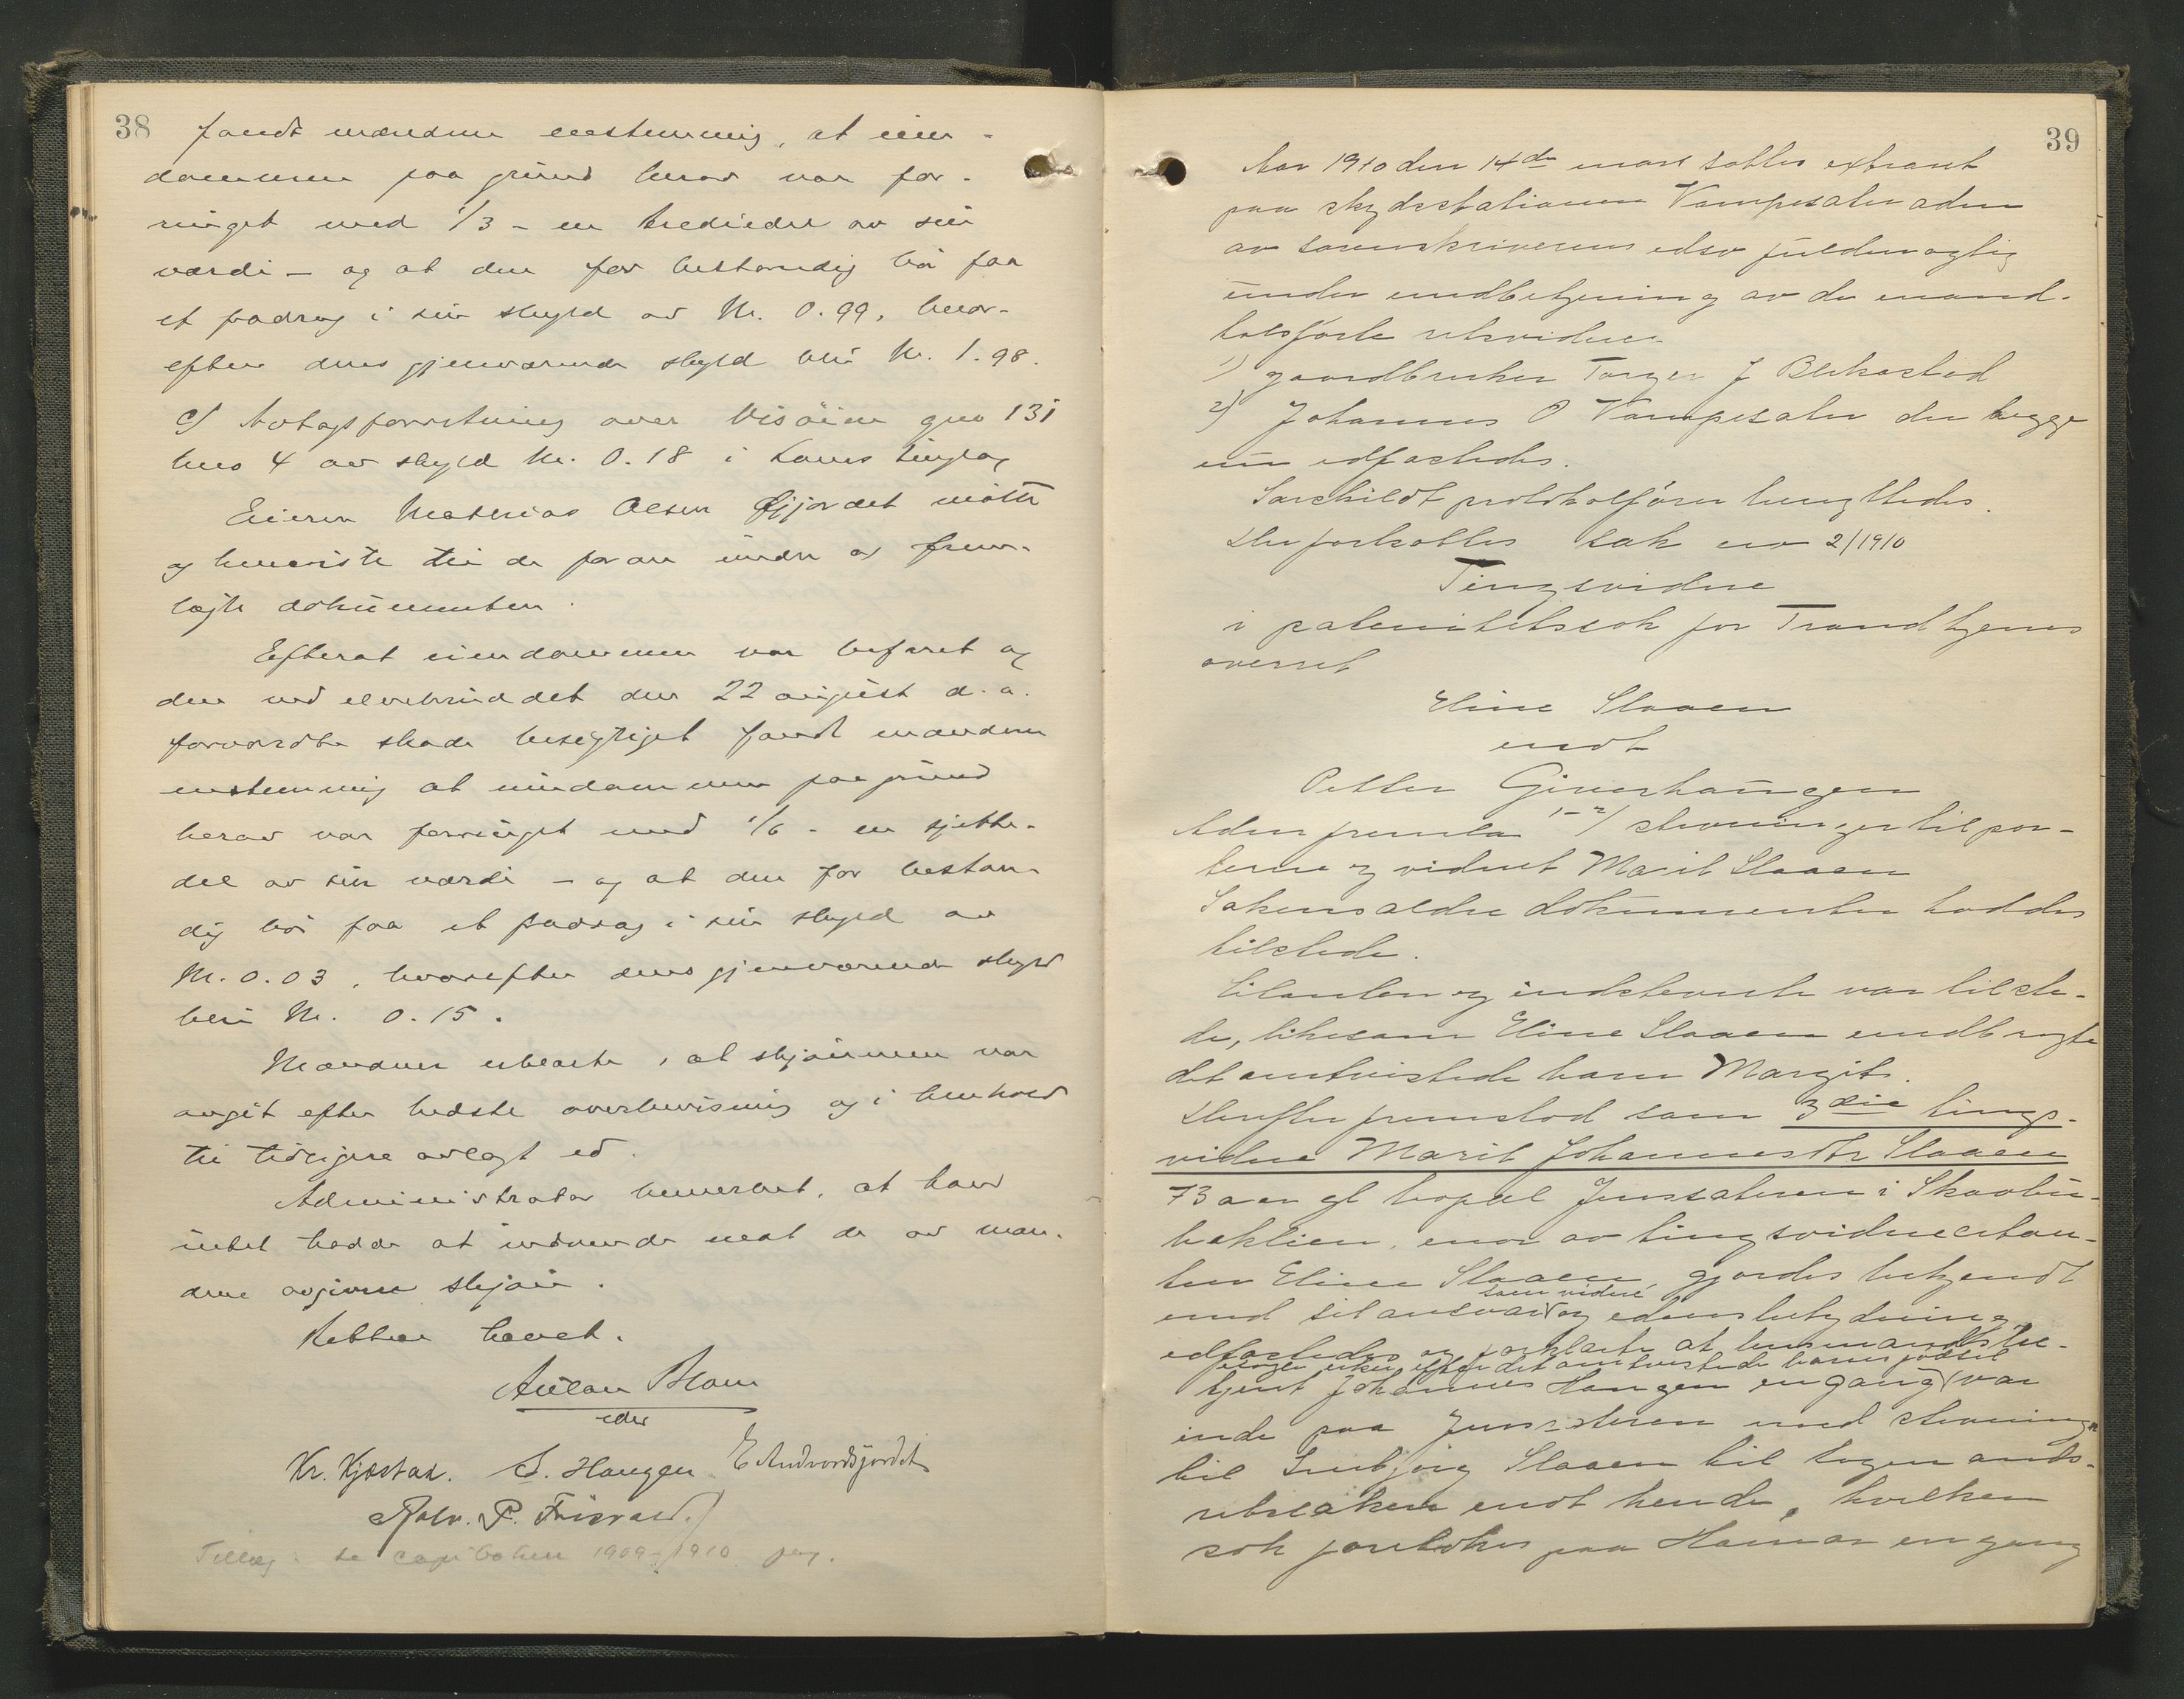 38
fandt mændene enstemmig, at eien-
dommen paa grund herav var for-
ringet med 1/3 - en trediedel av sin
værdi - og at den for bestandig bør faa
et fradrag i sin skyld av Mr. 0.99, hvor-
efter dens gjenværende skyld blir Mr. 1.98.
c) Avtagsforretning over Visöien gno 131
bno 4 av skyld Mr. 0.18 i Loms tinglag
Eieren Mathias Olsen Gjjordet mötte
og henviste til de foran under a frem-
lagte dokumenter.
Efterat eiendommen var befaret og
den ved elvebruddet den 22 august d.a.
forvoldte skade besigtiget fandt mændene
enstemmig at eiendommen paa grund
herav var forringet med 1/6 - en sjette-
del av sin værdi - og at den for bestan-
dig bör faa et fradrag i sin skyld av
Mr. 0.03, hvorefter dens gjenværende skyld
blir Mr. 0.15.
Mændene erklærte, at skjönnene var
avgit efter bedste overbevisning og i henhold
til tidligere avlagt ed.
Administrator bemerket, at han
intet hadde at indvende mot de av mæn-
dene avgivne skjön.
Retten hævet.
Aulau Blom
eds
Kr. Kjæstad. S. Haugen E Andvordsjordet
Rolv. P. Frisvold.
Tillæg: se kopiboken 1909-1910 pag.
39
Aar 1910 den 14de mars sattes extraret
paa skydsstationen Vampesater adm
av sorenskriverens edsv fuldmægtig
under medbetjening av de mand-
talsførte retsvidner
1) gaardbruker Torger J Blekastad
2) Johannes O Vampesater der begge
nu edfæstedes.
Særskildt protokolförer benyttedes.
Der foretokes sak no 2/1910
Tingsvidne
i paternitetssak for Trondhjems
overret
Eline Slaaen
mot
Petter Giverhaugen
Adm fremla 1-2) stevninger til par-
terne og vidnet Marit Slaaen
Sakens ældre dokumenter haddes
tilstede.
Citanten og indstevnte var tilste-
de, likesom Eline Slaaen medbragte
det omtvistede barn Margit.
Derefter fremstod som 3die tings-
vidne Marit Johannesdtr Slaaen
73 aar gl bopæl Jenssateren i Skaabu-
baklien, mor av tingsvidnecitan-
ten Eline Slaaen, gjordes bekjendt
som vidne
med sit ansvar og edens betydning,
edfæstedes og forklarte at lensmandsbe-
nogen uker efter det omtvistede barns födsel
tjent Johannes Haugen engang var
inde paa Jenssateren med stevning
til Imbjörg Slaaen til lagmands-
retssaken mot hende, hvilken
sak foretokes paa Hamar engang